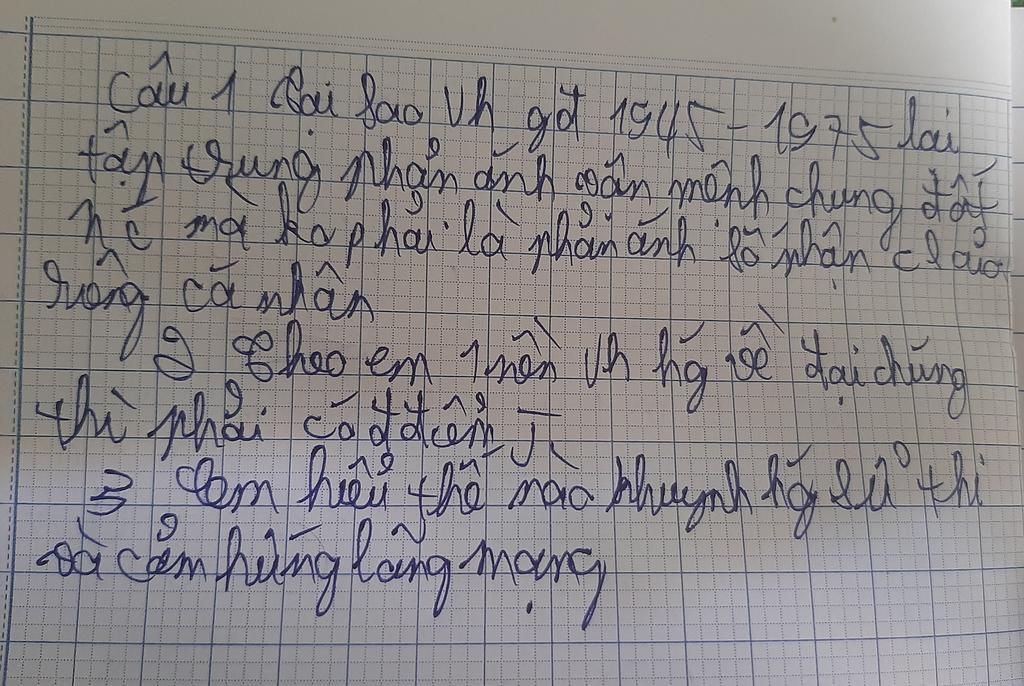 Câu 1 Tại sao Vh gđ 1945-1975 lại
tập trung phản ánh vận mệnh chung đất
nc mà ko phải là phản ánh số phận
riêng cá nhân
2 Theo em 1 nền Vh hg về đại chúng
thì phải có đđiểm
3 Em hiểu thế nào khuynh hg sử thi
và cảm hứng lãng mạng